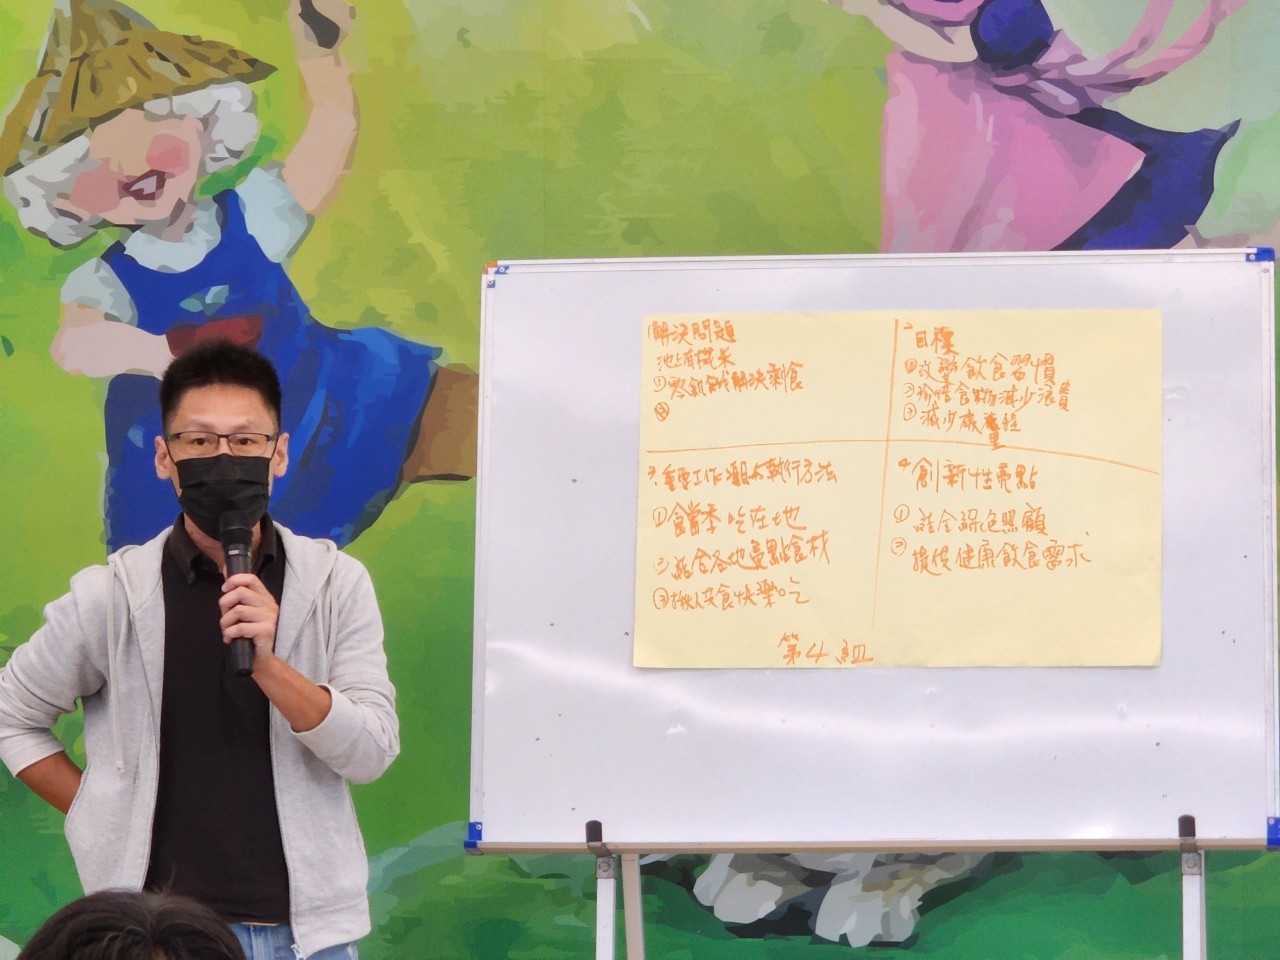 1解決問題
池上有機米
①零飢餓解決剩食
②
2目標
①改變飲食習慣
②珍惜食物減少浪費
③減少碳排量
3.重要工作項目大執行方法
①食當季吃在地
②結合各地景點食材
③揪人安食快樂吃
4創新性亮點
①結合綠色照顧
②提供健康飲食需求
第4組